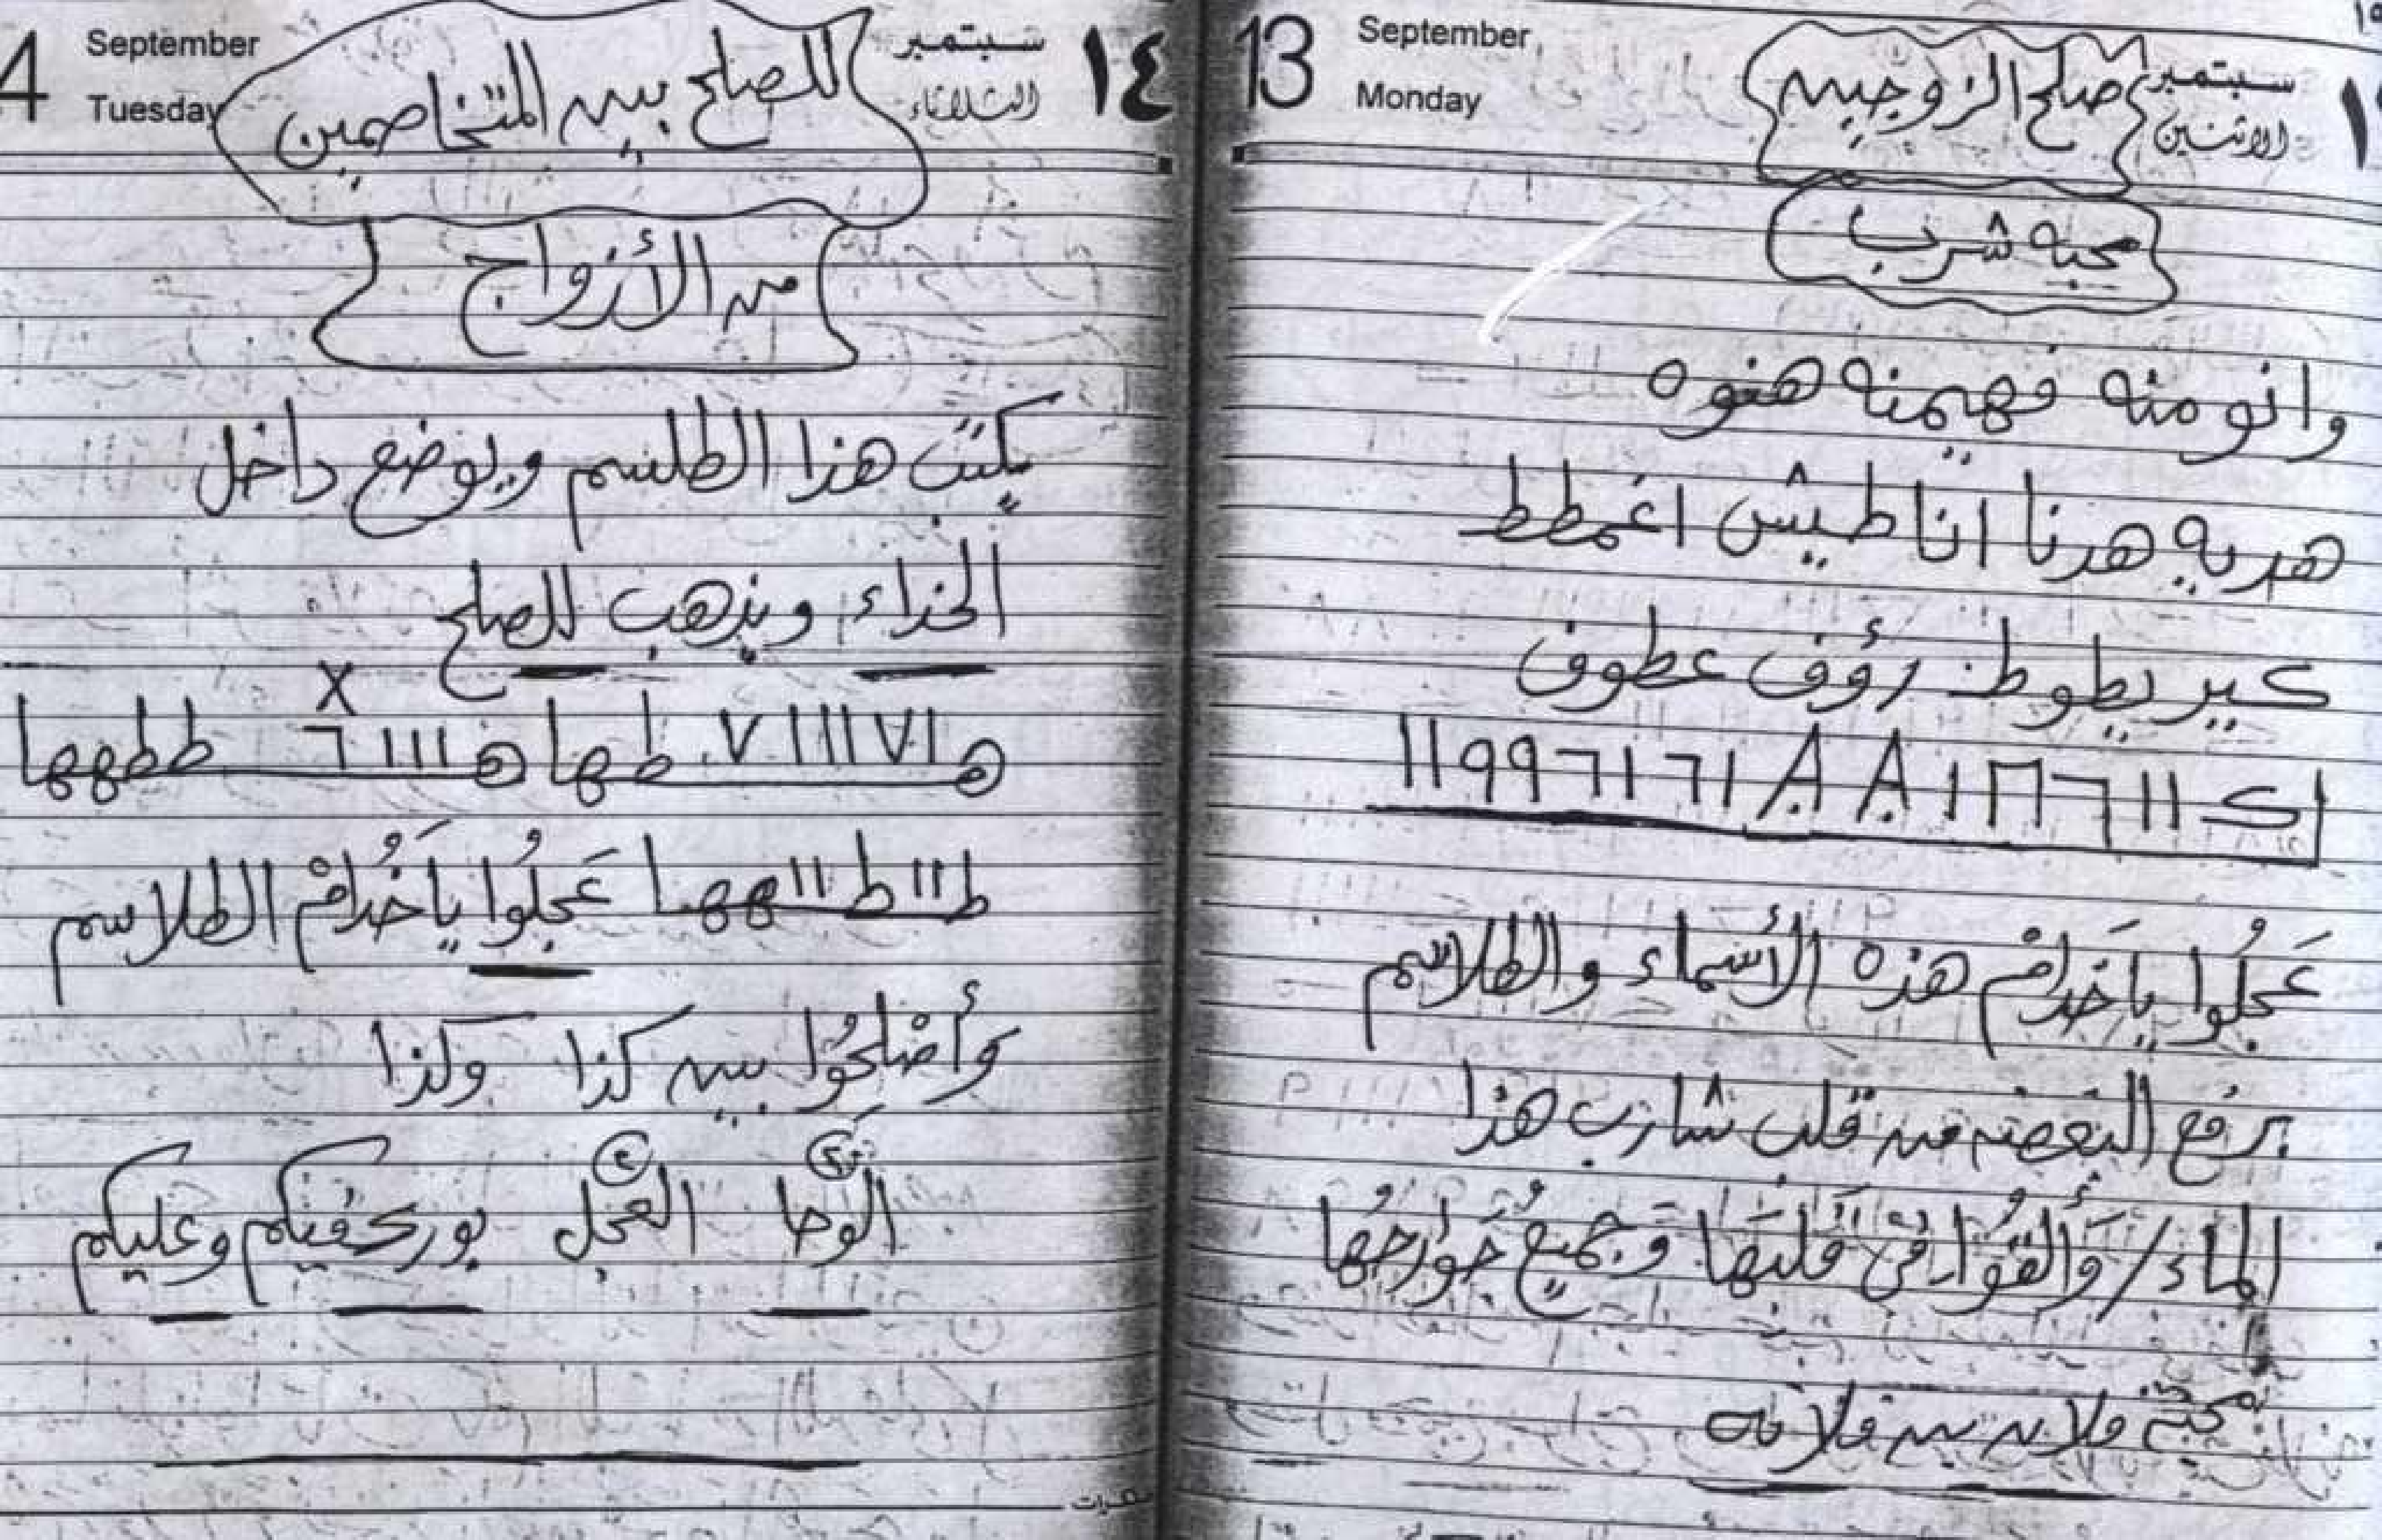 13 September سبتمبر
Monday الاثنين
صلح الزوجين
محبه شرب
وانو منه فهيمنه هنوه
هدبه هدنا اناطيش اغمطط
كير بطوط رؤف عطوف
عَجلُوا ياخَدامْ هذه الأسماء والطلاسم
برفع البغضه من قلب شارب هذا
الماء / وَألقُوا في قَلبَها وَجميعُ جَوارحُها
محبة فلان بن فلانه
4 September سبتمبر ١٤
Tuesday الثلاثاء
للصلح بين المتخاصمين
من الأزواج
يكتب هذا الطلسم ويوضع داخل
الحذاء ويذهب للصلح
ه١٧١١١١٧ طها ه١١١٦ ططهها
X
ط١١ط١١ههها عَجلُوا ياخُدامْ الطلاسم
وَأصْلِحُوا بين كذا وكذا
الوحا العجل بورك فيكم وعليكم